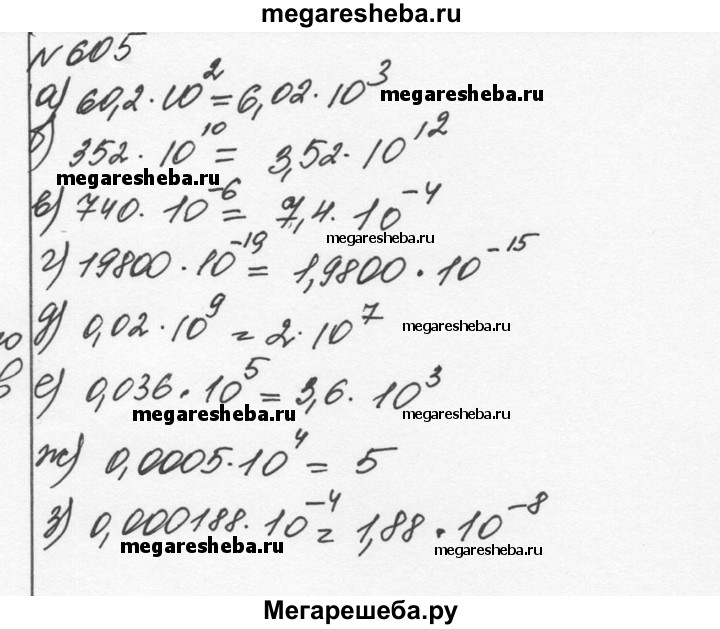 megaresheba.ru
№ 605
а) 60,2 · 10² = 6,02 · 10³ megaresheba.ru
б) 352 · 10¹⁰ = 3,52 · 10¹²
megaresheba.ru
в) 740 · 10⁻⁶ = 7,4 · 10⁻⁴
megaresheba.ru
г) 19800 · 10⁻¹⁹ = 1,9800 · 10⁻¹⁵
д) 0,02 · 10⁹ = 2 · 10⁷ megaresheba.ru
ю
в
е) 0,036 · 10⁵ = 3,6 · 10³
megaresheba.ru megaresheba.ru
ж) 0,0005 · 10⁴ = 5
з) 0,000188 · 10⁻⁴ = 1,88 · 10⁻⁸
megaresheba.ru megaresheba.ru
Мегарешеба.ру